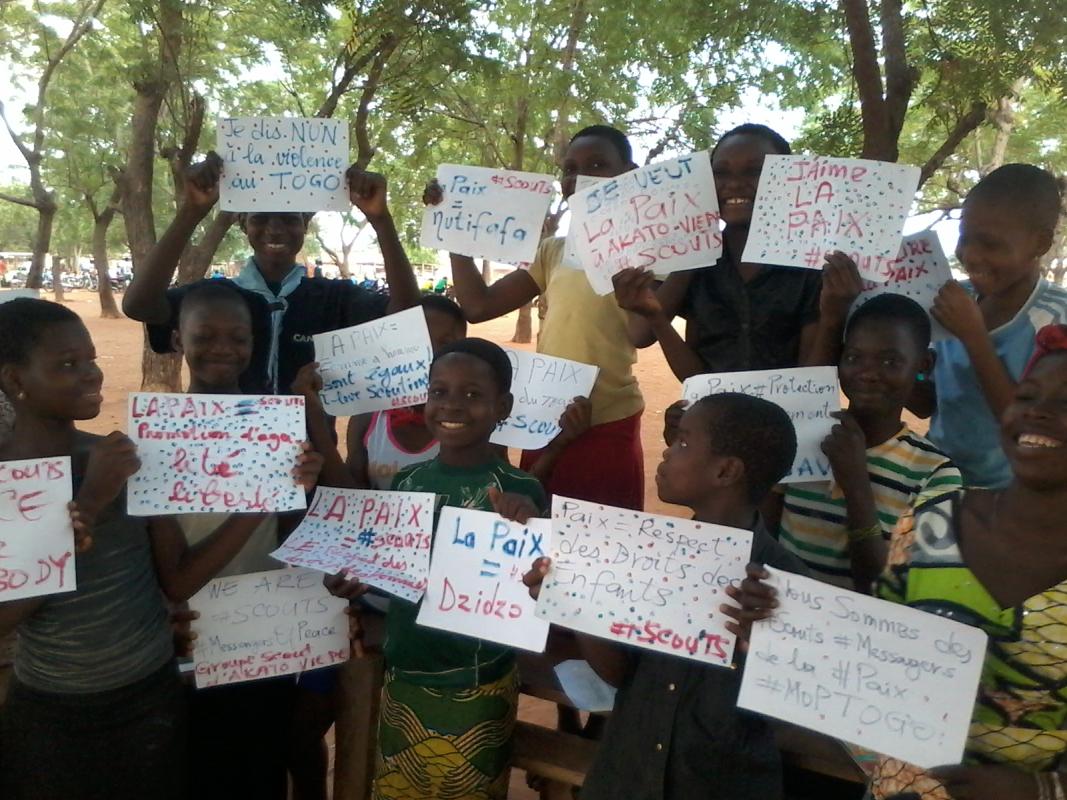 Je dis NON
à la violence
au TOGO
Paix #SCOUTS
=
nutifafa
JE VEUT
La Paix
à AKATO-VIEPE
#SCOUTS
J'Aime
LA
PAIX
#SCOUTS
LA PAIX =
sont égaux
I-love Scouting
LA PAIX
du
#SCOU
La Paix #Protection
LA PAIX = SCOUTS
Promotion d'ega
lité
liberté
LA PAIX
= #SCOUTS
La Paix
=
Dzidzo
Paix = Respect
des Droits des
Enfants
#SCOUTS
SCOUTS
CE
BODY
WE ARE
#SCOUTS
#Messengers Of Peace
Groupe Scout
d'AKATO VIEPE
Nous Sommes des
Scouts #Messagers
de la #Paix
#MOP TOGO